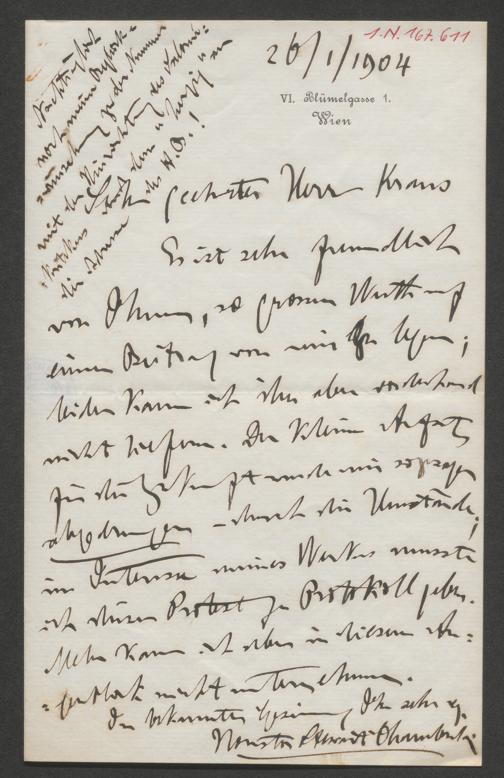 I.N. 167.611
26/1/1904
VI. Blümelgasse 1.
Wien
Sehr geehrter Herr Kraus
Es ist sehr freundlich
von Ihnen, so grossen Werth auf
einen Beitrag von mir zu legen;
leider kann ich ihn aber vorderhand
nicht liefern. Der kleine Aufsatz
für die Zukunft wurde mir sozusagen
abgedrungen – durch die Umstände;
im Interesse meines Werkes musste
ich diesen Protest zu Protokoll geben.
Mehr kann ich aber in diesem Au-
genblick nicht unternehmen.
In bekannter Gesinnung Ihr sehr erg.
Houston Stewart Chamberlain
Nachträglich
noch meine
zu der Nummer
mit der Hinrichtung des
die Adresse des